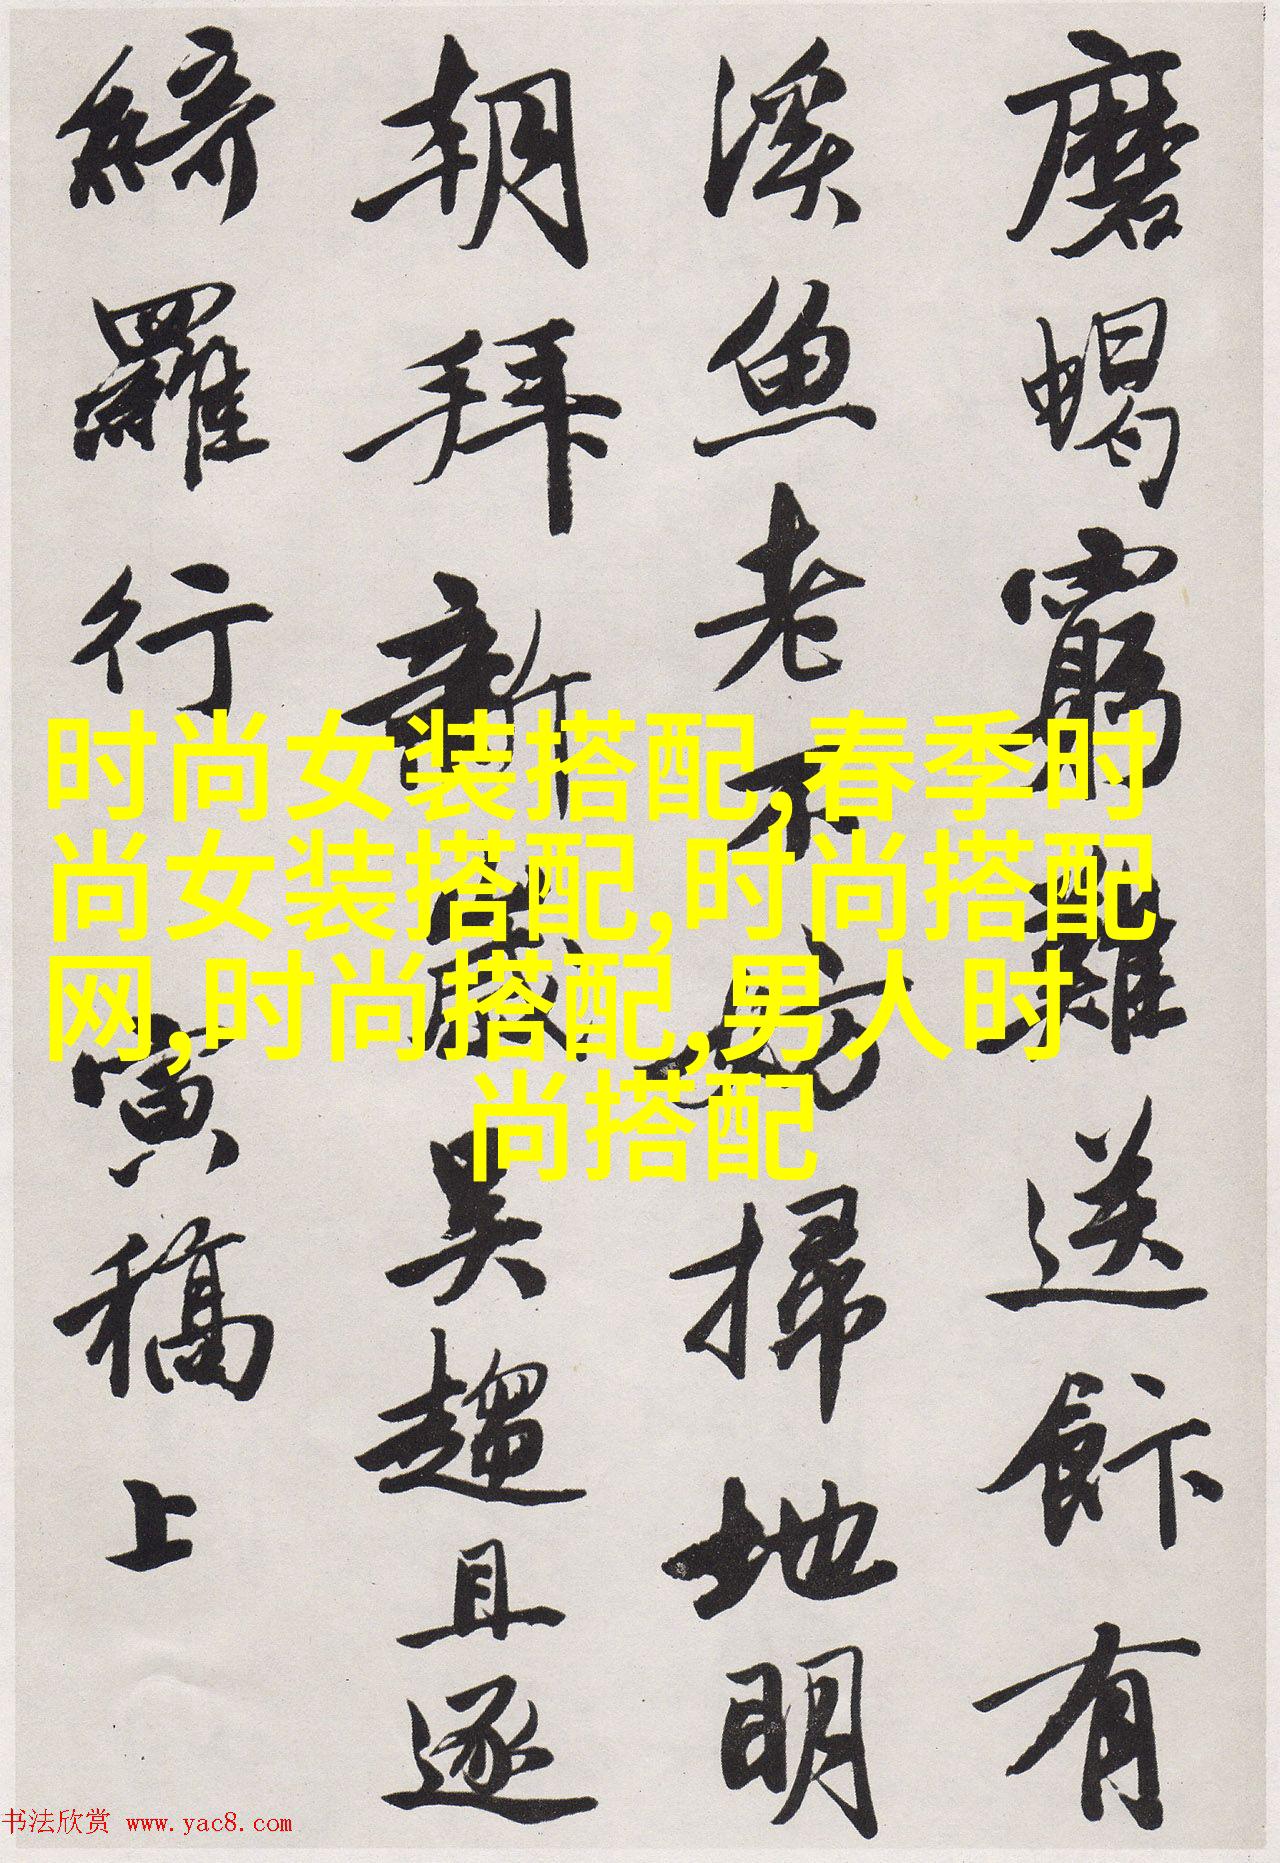 磨蝎窮難送餅有
溪魚老不妨掃地明
朝拜新歲吳趨且逐
綺羅行 寅稿上
时尚女装搭配,春季时
尚女装搭配,时尚搭配
网,时尚搭配,男人时
尚搭配
书法欣赏 www.yac8.com